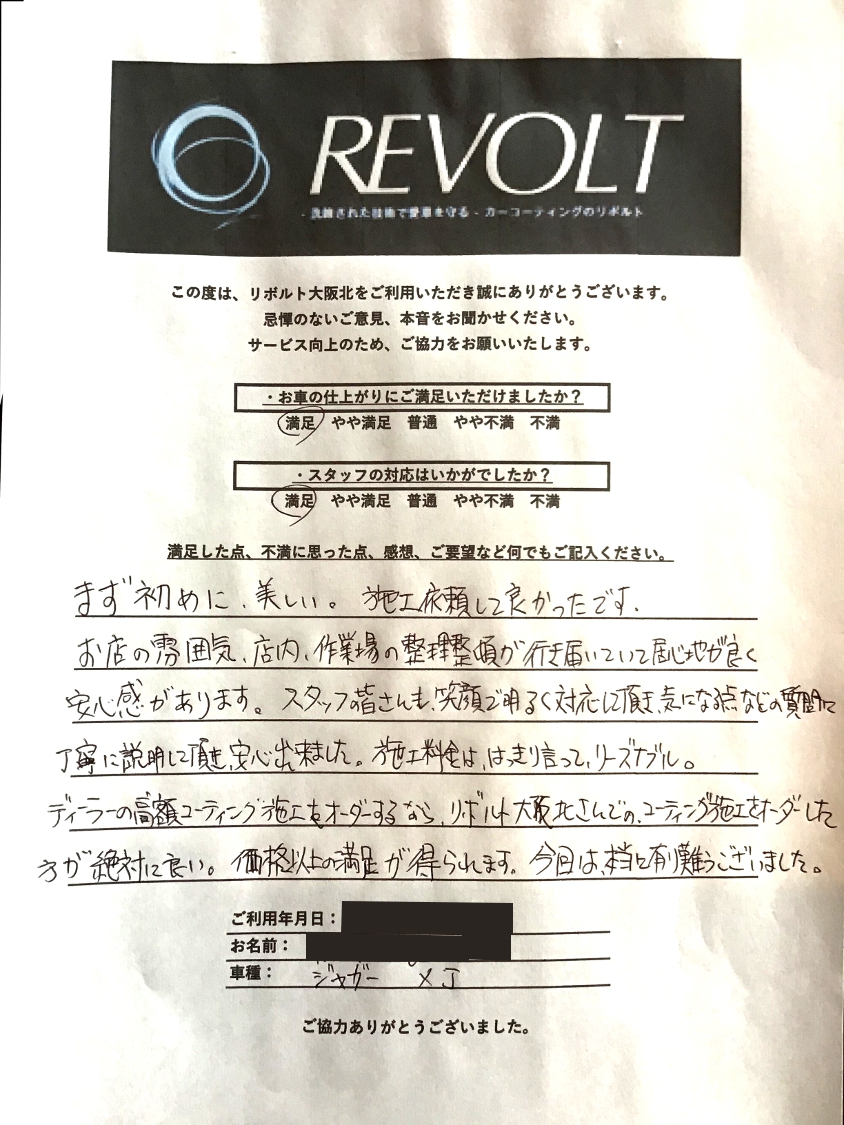 REVOLT
- 洗練された技術で愛車を守る - カーコーティングのリボルト
この度は、リボルト大阪北をご利用いただき誠にありがとうございます。
忌憚のないご意見、本音をお聞かせください。
サービス向上のため、ご協力をお願いいたします。
・お車の仕上がりにご満足いただけましたか？
満足 やや満足 普通 やや不満 不満
・スタッフの対応はいかがでしたか？
満足 やや満足 普通 やや不満 不満
満足した点、不満に思った点、感想、ご要望など何でもご記入ください。
まず初めに、美しい。施工依頼して良かったです。
お店の雰囲気、店内、作業場の整理整頓が行き届いていて居心地が良く
安心感があります。スタッフの皆さんも、笑顔で明るく対応して頂き、気になる点などの質問に
丁寧に説明して頂き、安心出来ました。施工料金は、はっきり言って、リーズナブル。
ディーラーの高額コーティング施工をオーダーするなら、リボルト大阪北さんでの、コーティング施工をオーダーした
方が絶対に良い。価格以上の満足が得られます。今回は、本当に有り難うございました。
ご利用年月日：
お名前：
車種： ジャガー XJ
ご協力ありがとうございました。